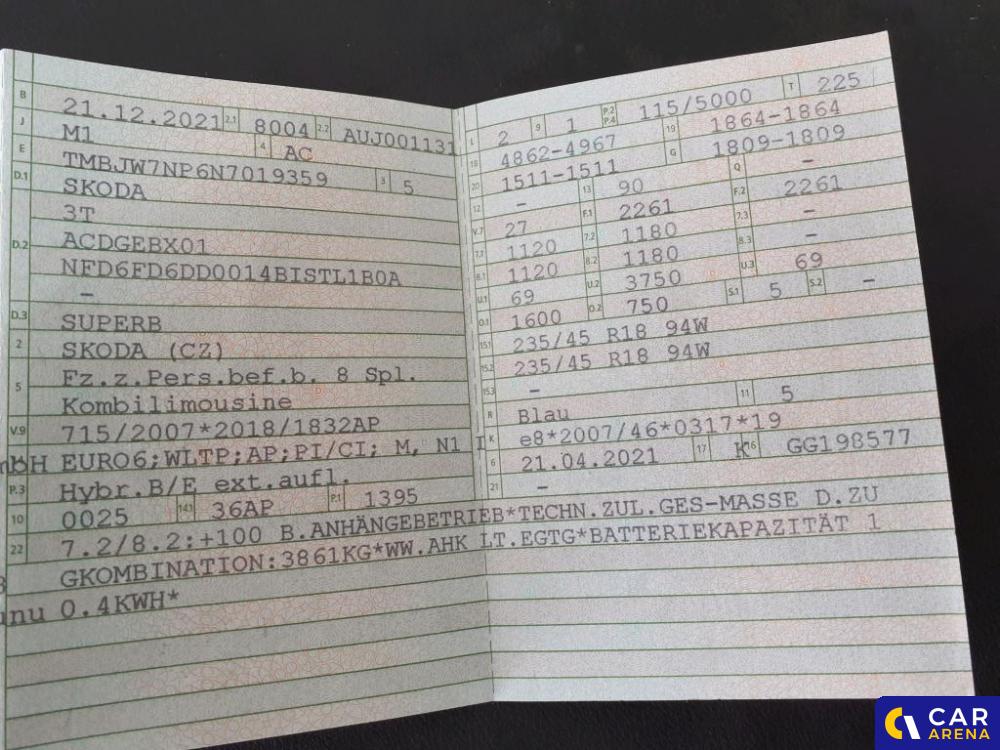 B 21.12.2021 2.1 8004 2.2 AUJ001131
J M1 4 AC
E TMBJW7NP6N7019359 3 5
D.1 SKODA
3T
D.2 ACDGEBX01
NFD6FD6DD0014BISTL1B0A
–
D.3 SUPERB
2 SKODA (CZ)
5 Fz.z.Pers.bef.b. 8 Spl.
Kombilimousine
V.9 715/2007*2018/1832AP
EURO6;WLTP;AP;PI/CI; M, N1 I
P.3 Hybr.B/E ext.aufl.
10 0025 14.1 36AP P.1 1395
L 2 9 1 P.2 P.4 115/5000 T 225
18 4862-4967 19 1864-1864
20 1511-1511 G 1809-1809
12 – 13 90 Q –
V.7 27 F.1 2261 F.2 2261
7.1 1120 7.2 1180 7.3 –
8.1 1120 8.2 1180 8.3 –
U.1 69 U.2 3750 U.3 69
O.1 1600 O.2 750 S.1 5 S.2 –
15.1 235/45 R18 94W
15.2 235/45 R18 94W
15.3 –
R Blau 11 5
K e8*2007/46*0317*19
6 21.04.2021 17 K 16 GG198577
21 –
22 7.2/8.2:+100 B.ANHÄNGEBETRIEB*TECHN.ZUL.GES-MASSE D.ZU
GKOMBINATION:3861KG*WW.AHK LT.EGTG*BATTERIEKAPAZITÄT 1
0.4KWH*
CAR
ARENA